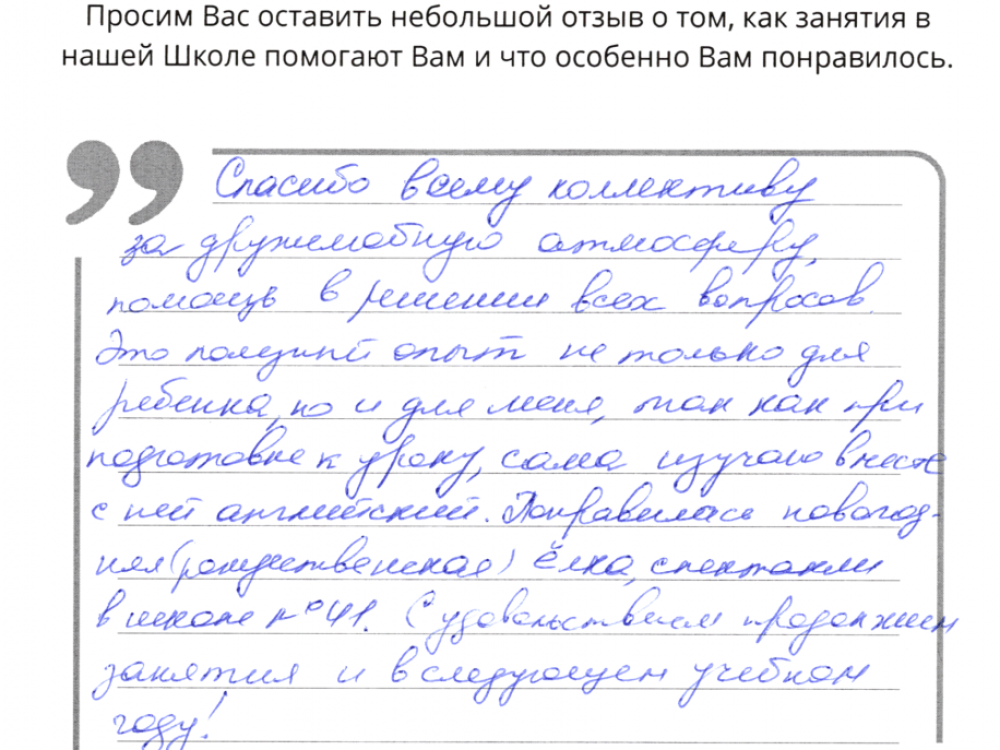 Просим Вас оставить небольшой отзыв о том, как занятия в
нашей Школе помогают Вам и что особенно Вам понравилось.
Спасибо всему коллективу
за дружелюбную атмосферу,
помощь в решении всех вопросов.
Это полезный опыт не только для
ребенка, но и для меня, так как при
подготовке к уроку, сама изучаю вместе
с ней английский. Понравилась новогод-
няя (рождественская) ёлка, спектакли
в школе №41. С удовольствием продолжим
занятия и в следующем учебном
году!